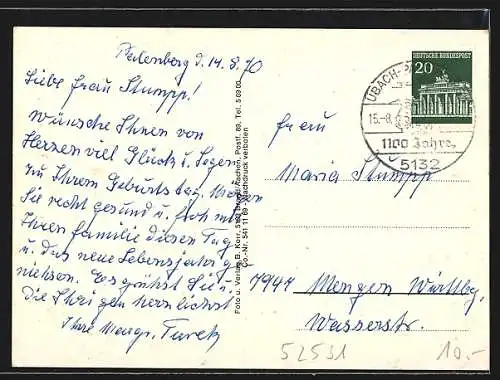 Palenberg d. 14.8.70
Liebe Frau Stumpp!
Wünsche Ihnen von
Herzen viel Glück u. Segen
zu Ihrem Geburtstag. Mögen
Sie recht gesund u. froh mit
Ihrer Familie diesen Tag
u. das neue Lebensjahr
Es grüßt Sie u.
die Ihrigen herzlichst
Ihre Margr. Turek
Foto u. Verlag B. Korr, Postf. 89, Tel. 5 69 00
Nachdruck verboten
DEUTSCHE BUNDESPOST
20
ÜBACH-P
15.-8.
1100 Jahre
5132
Frau
Maria Stumpp
7947 Mengen Württbg.
Wasserstr.
52531
10.-